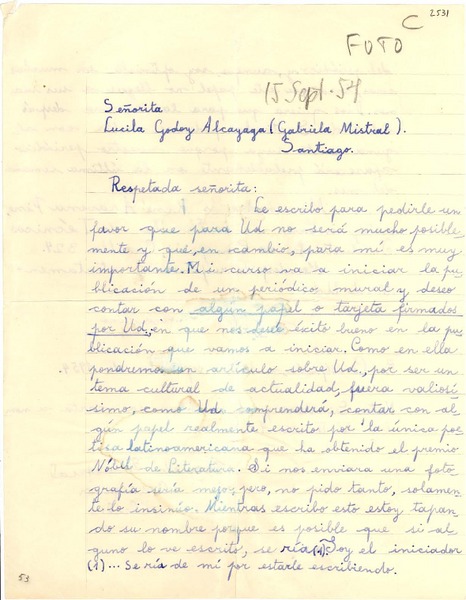 2531
C
FOTO
15 Sept. 54
Señorita
Lucila Godoy Alcayaga (Gabriela Mistral).
Santiago.
Respetada señorita:
Le escribo para pedirle un
favor que para Ud no será mucho posible-
mente y que, en cambio, para mí es muy
importante. Mi curso va a iniciar la pu-
blicación de un periódico mural y deseo
contar con algún papel o tarjeta firmados
por Ud, en que nos dese éxito bueno en la pu-
blicación que vamos a iniciar. Como en ella
pondremos un artículo sobre Ud., por ser un
tema cultural de actualidad, fuera valiosí-
simo, como Ud comprenderá, contar con al-
gún papel realmente escrito por la única poe-
tisa latinoamericana que ha obtenido el premio
Nóbel de Literatura. Si nos enviara una foto-
grafía sería mejor, pero, no pido tanto, solamen-
te lo insinúo. Mientras escribo esto estoy tapan-
do su nombre porque es posible que si al-
guno lo ve escrito, se ría (1). Soy el iniciador
(1)... Se ría de mí por estarle escribiendo.
53